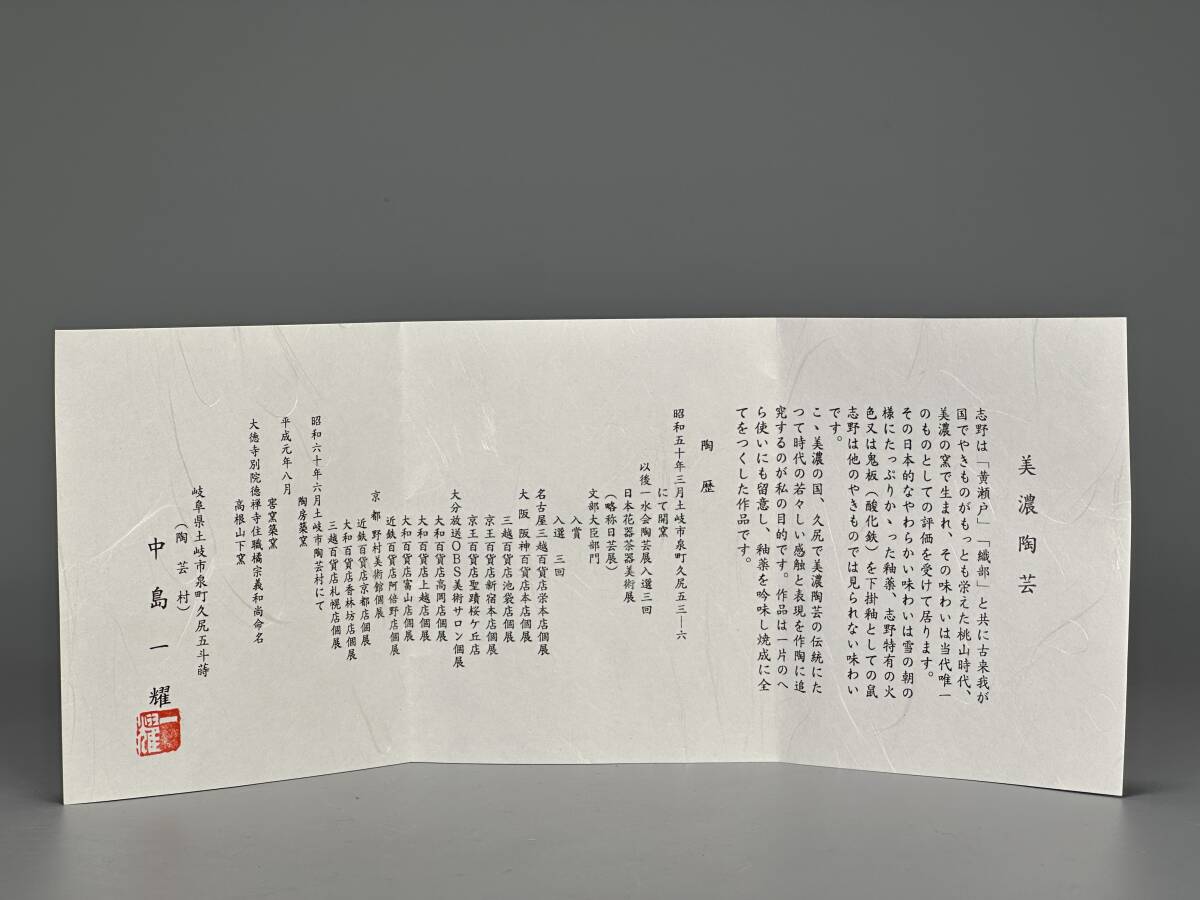 美濃陶芸
志野は「黄瀬戸」「織部」と共に古来我が
国でやきものがもっとも栄えた桃山時代、
美濃の窯で生まれ、その味わいは当代唯一
のものとしての評価を受けて居ります。
その日本的なやわらかい味わいは雪の朝の
様にたっぷりかゝった釉薬、志野特有の火
色又は鬼板（酸化鉄）を下掛釉としての鼠
志野は他のやきものでは見られない味わい
です。
こゝ美濃の国、久尻で美濃陶芸の伝統にた
って時代の若々しい感触と表現を作陶に追
究するのが私の目的です。作品は一片のへ
ら使いにも留意し、釉薬を吟味し焼成に全
てをつくした作品です。
陶歴
昭和五十年三月土岐市泉町久尻五三―六
にて開窯
以後一水会陶芸展入選三回
日本花器茶器美術展
（略称日芸展）
文部大臣部門
入賞
入選　三回
名古屋三越百貨店栄本店個展
大阪　阪神百貨店本店個展
三越百貨店池袋店個展
京王百貨店新宿本店個展
京王百貨店聖蹟桜ケ丘店
大分放送OBS美術サロン個展
大和百貨店高岡店個展
大和百貨店上越店個展
大和百貨店富山店個展
近鉄百貨店阿倍野店個展
京都　野村美術館個展
近鉄百貨店京都店個展
大和百貨店香林坊店個展
三越百貨店札幌店個展
昭和六十年六月土岐市陶芸村にて
陶房築窯
平成元年八月
窖窯築窯
大徳寺別院徳禅寺住職橘宗義和尚命名
高根山下窯
岐阜県土岐市泉町久尻五斗蒔
（陶芸村）
中島一耀
一耀